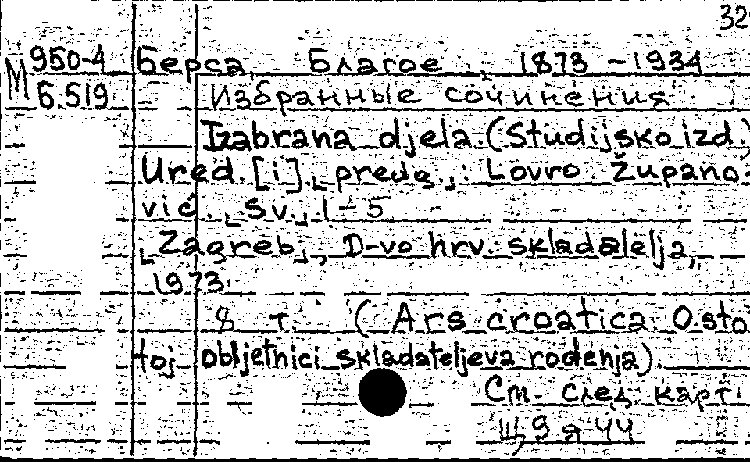 32
М 950-4 Берса, Благое, 1873-1934
6.519 Избранные сочинения
Izabrana djela. (Studijsko izd.)
Ured. [i] pred
Lovro Župano-
vić. Sv. 1-5
Zagreb, D-vo hrv. skladatelja,
1973.
8 т. (Ars croatica. O sto
toj obljetnici skladateljeva rođenja).
Ст. след. карт.